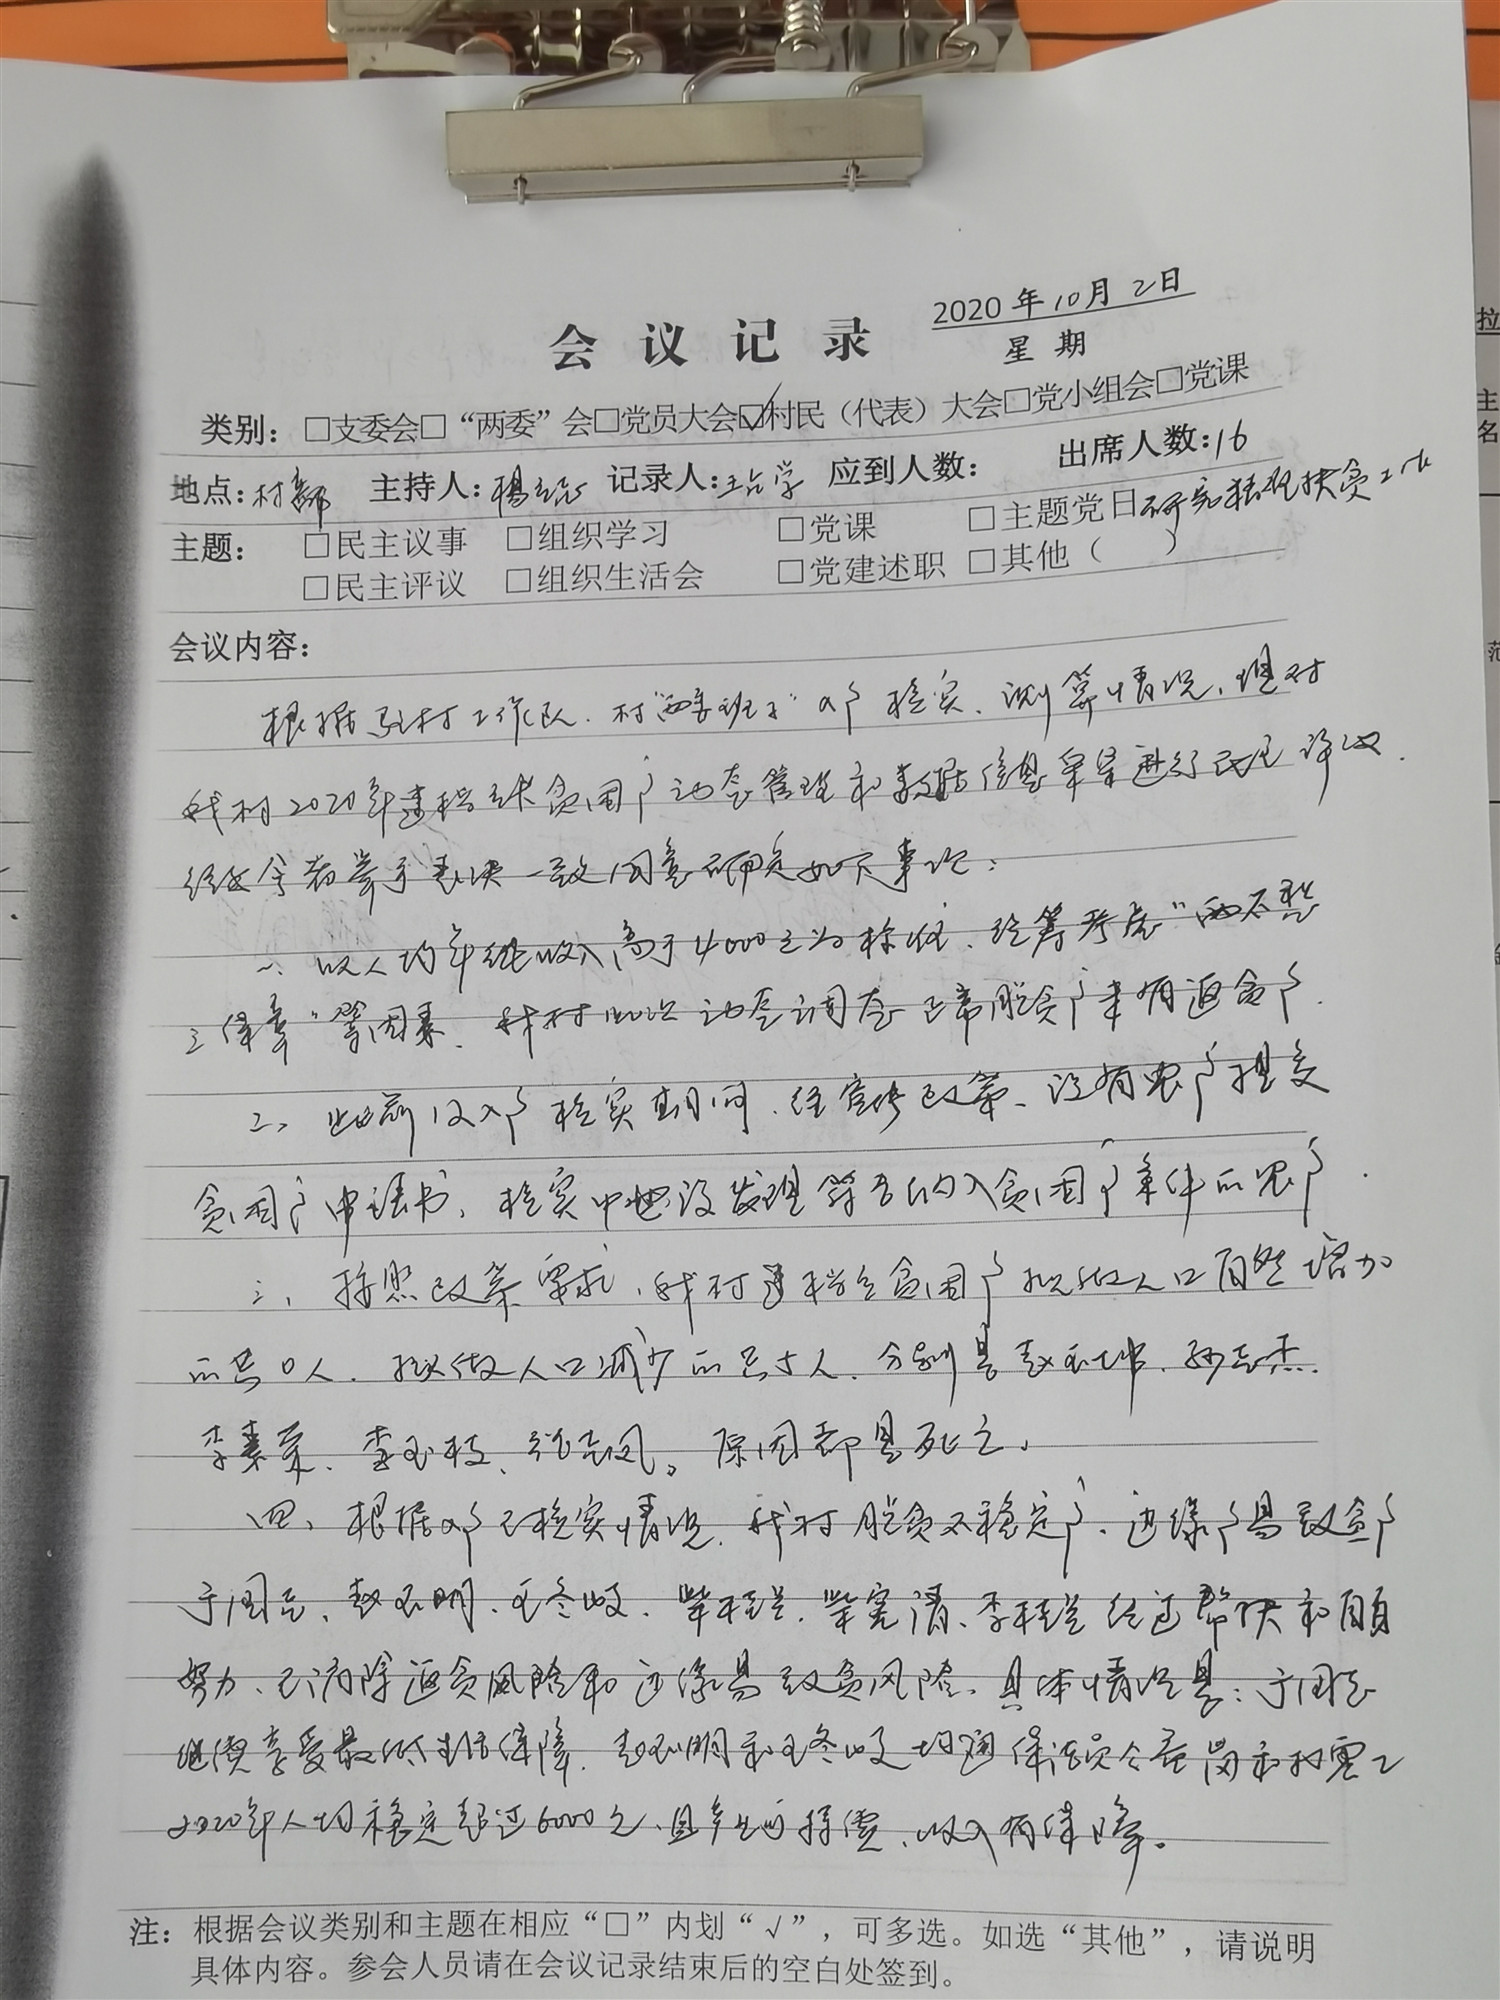 2020 年 10月 2日
会 议 记 录
星 期
类别：□支委会□“两委”会□党员大会☑村民（代表）大会□党小组会□党课
地点：村部 主持人：杨 记录人：王占学 应到人数： 出席人数：16
主题： □民主议事 □组织学习 □党课 □主题党日 研究精准扶贫工作
□民主评议 □组织生活会 □党建述职 □其他（ ）
会议内容：
根据驻村工作队、村“两委班子”入户核实、测算情况，现对
我村2020年建档立卡贫困户动态管理和数据信息采集进行民主评议．
经与会者举手表决一致同意确定如下事论：
一、以人均年纯收入高于4000元为标准，统筹考虑“两不愁
三保障”等因素，我村此次动态调查正常脱贫户未有返贫户．
二、此前仅入户核实期间，经宣传政策、没有农户提交
贫困户申请书，核实中也没发现符合纳入贫困户条件的农户．
三、按照政策要求，我村建档立贫困户拟做人口自然增加
的共0人．拟做人口减少的共5人．分别是赵玉坤、孙志杰．
李素荣、李玉枝、张志凤。原因都是死亡。
四、根据入户已核实情况，我村脱贫不稳定户、边缘户易致贫户
于国志、赵玉明、王冬岐、柴桂兰、柴宪清、李桂兰经过帮扶和自身
努力、已消除返贫风险和边缘易致贫风险，具体情况是：于国志
继续享受最低生活保障．赵玉明和王冬岐均通保洁员公益岗和打零工
2020年人均稳定超过6000元、且可持续、收入有保障。
注：根据会议类别和主题在相应“□”内划“√”，可多选。如选“其他”，请说明
具体内容。参会人员请在会议记录结束后的空白处签到。
拉
主
名
范